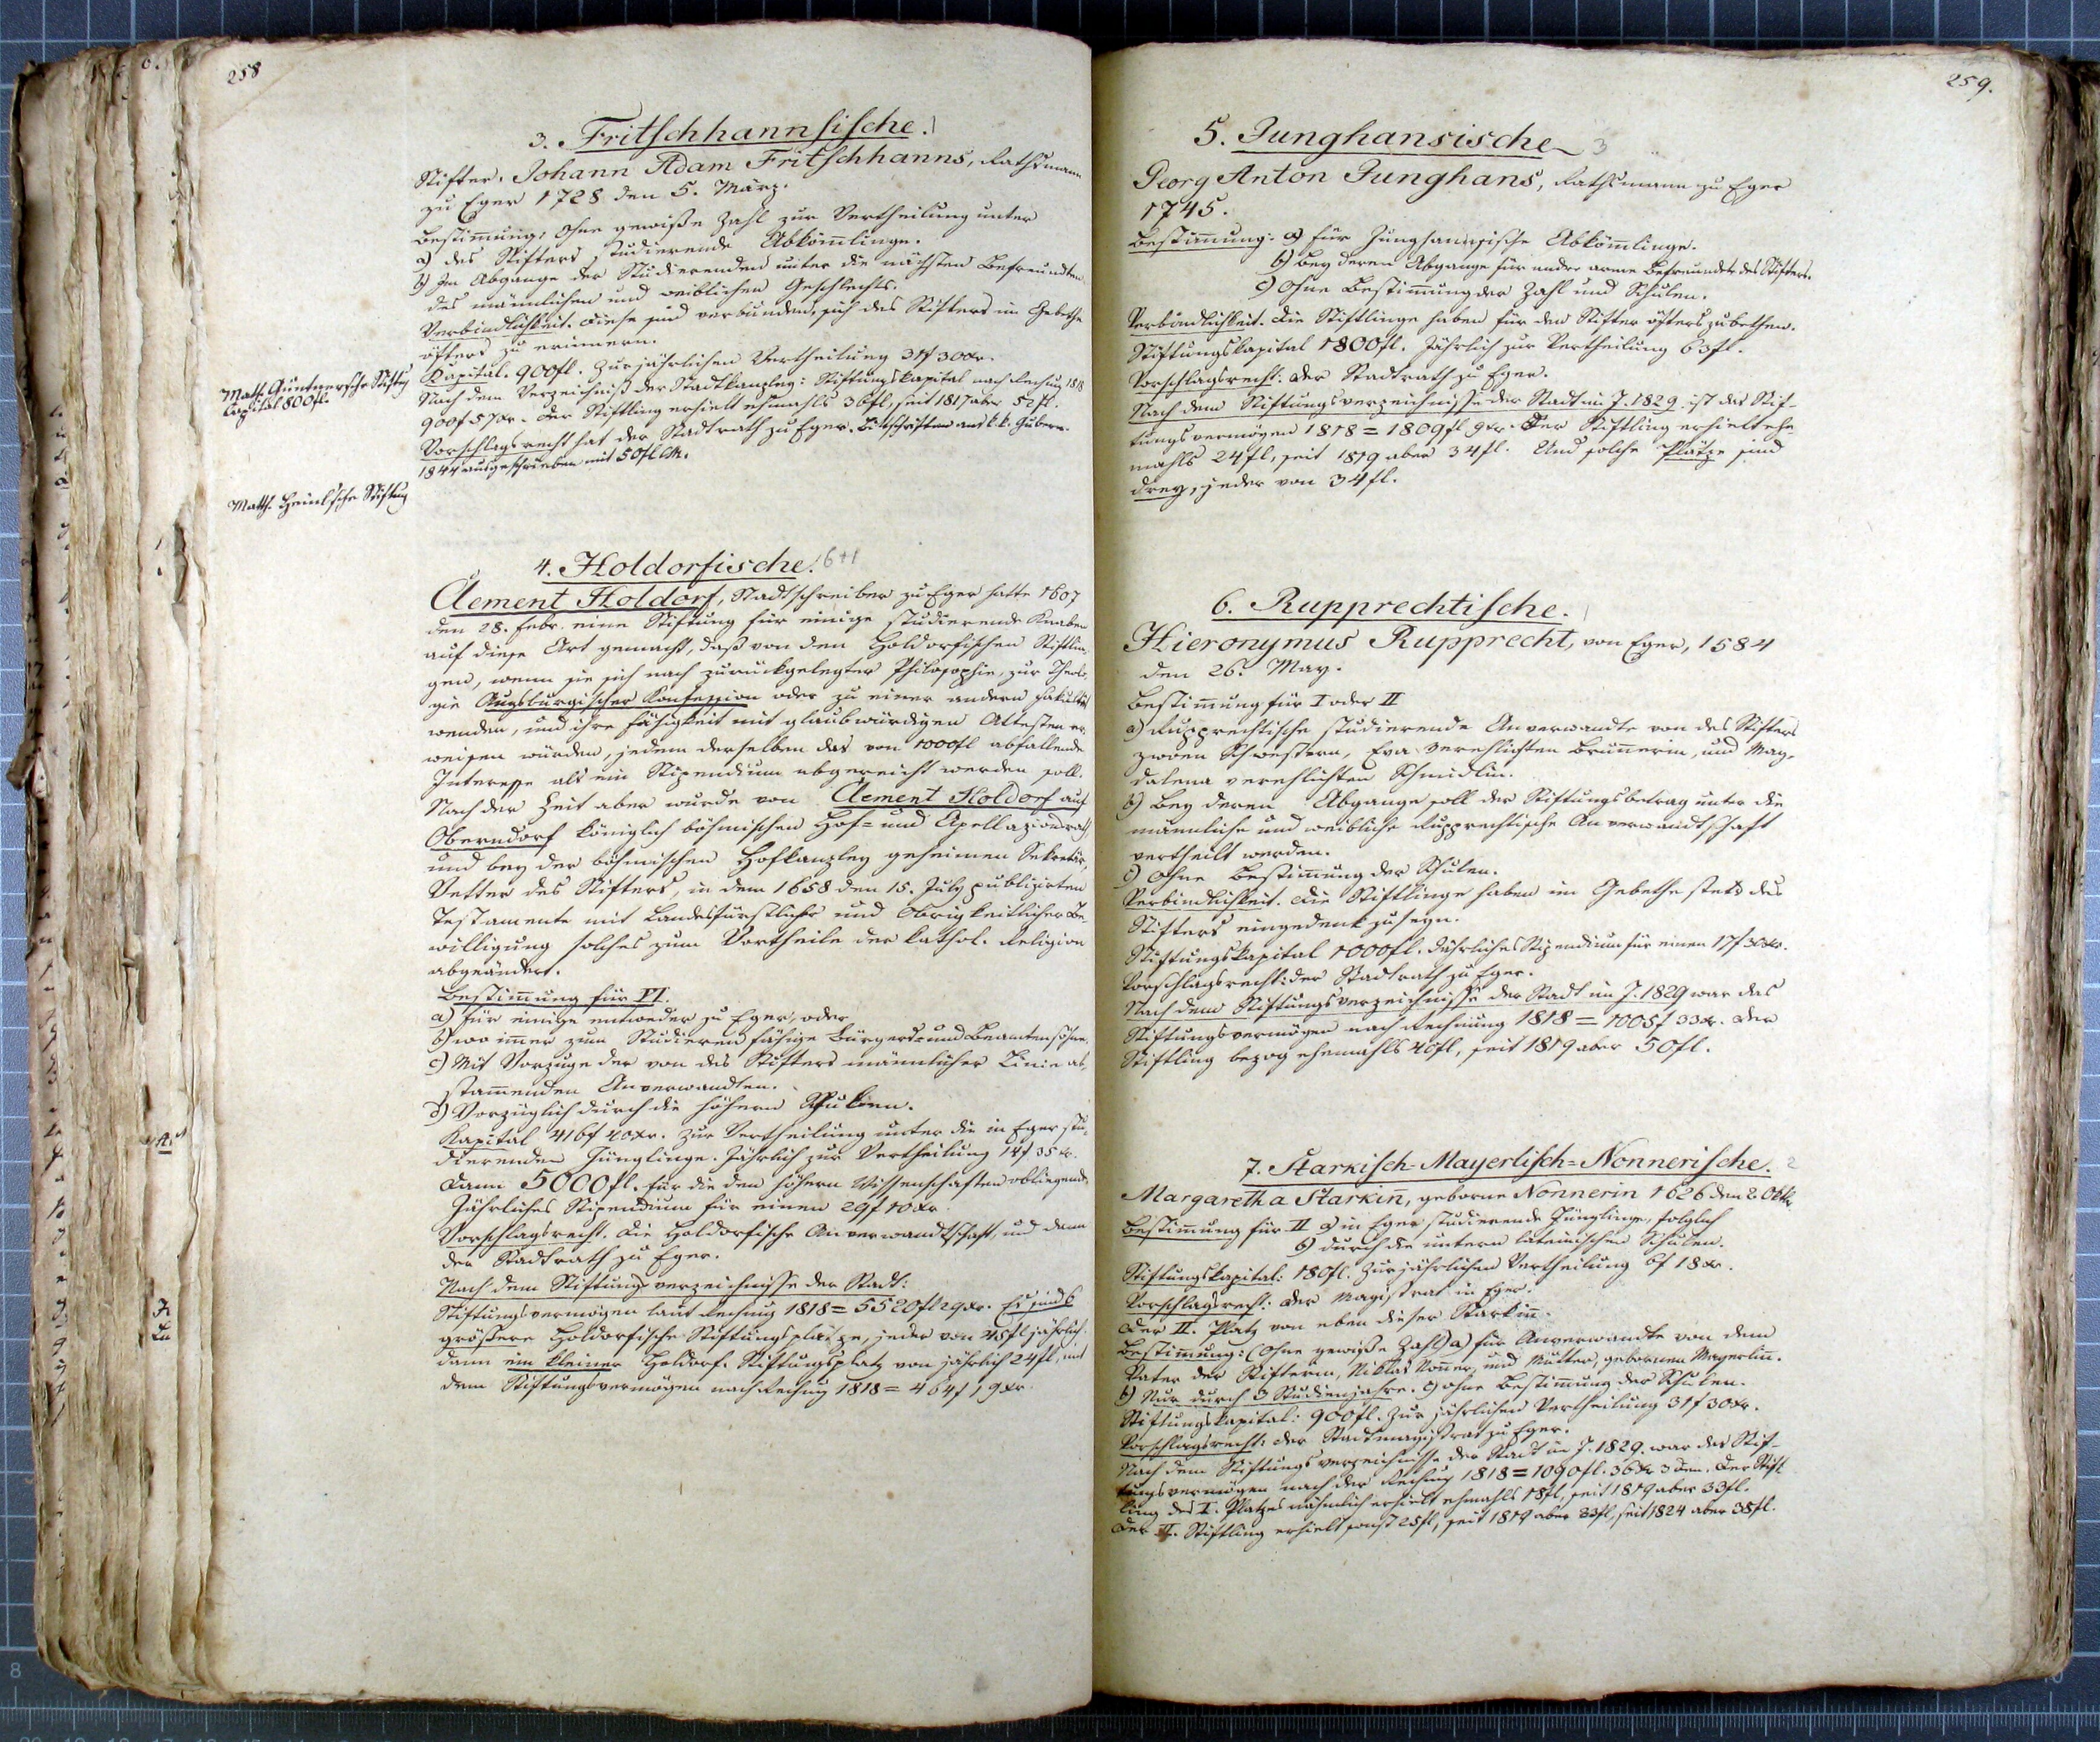 258
3. Fritschhannsische.
Stifter. Johann Adam Fritschhanns, Rathsmann
zu Eger 1728 den 5. März.
Bestim̄ung: Ohne gewisse Zahl zur Vertheilung unter
a) des Stifters studierende Abköm̄linge.
b) Im Abgange der Studierenden unter die nächsten Befreundten
des männlichen und weiblichen Geschlechts.
Verbindlichkeit. Diese sind verbunden, sich des Stifters im Gebethe
öfters zu erinnern.
Kapital. 900fl. Zur jährlichen Vertheilung 31f 30xr.
Nach dem Verzeichniß der Stadtkanzley: Stiftungskapital nach Rechnung 1818
900f 57xr. Der Stiftling erhielt ehmahls 36fl, seit 1817 aber 52fl.
Vorschlagsrecht hat der Stadtrath zu Eger. Bittschriften ans k.k. Gubern.
1844 ausgeschrieben mit 50fl CM.
Math. Guntnersche Stiftung
Capital 800fl.
Matth. Heinl'sche Stiftung
4. Holdorfische. 6+1
Clement Holdorf, Stadtschreiber zu Eger hatte 1607
den 28. Febr. eine Stiftung für einige studierende Knaben
auf diese Art gemacht, daß von den Holdorfischen Stiftlin-
gen, wenn sie sich nach zurückgelegter Philosophie, zur Theolo-
gie Augsburgischer Konfession oder zu einer andern Fakultät
wenden, und ihre Fähigkeit mit glaubwürdigen Attesten er-
weisen würden, jedem derselben das von 1000fl abfallende
Interesse als ein Stipendium abgereicht werden soll.
Nach der Zeit aber wurde von Clement Holdorf auf
Oberndorf königlich böhmischen Hof= und Apellazionsrath,
und bey der böhmischen Hofkanzley geheimen Sekretär,
Vetter des Stifters, in dem 1658 den 15. July publizirten
Testamente mit Landesfürstlicher und Obrigkeitlicher Be-
willigung solches zum Vortheile der kathol. Religion
abgeändert.
Bestim̄ung für VI.
a) für einige entweder zu Eger, oder
b) wo im̄er zum Studieren fähige Bürgers= und Beamtensöhne.
c) Mit Vorzuge der von des Stifters männlicher Linie ab-
stam̄enden Anverwandten.
d) Vorzüglich durch die höhern Schulen.
Kapital 416f 40xr. Zur Vertheilung unter die in Eger stu-
dierenden Jünglinge. Jährlich zur Vertheilung 14f 35xr.
Dann 5000fl. für die den höhern Wissenschaften obliegende.
Jährliches Stipendium für einen 29f 10xr.
Vorschlagsrecht. Die Holdorfische Anverwandtschaft, und dann
der Stadtrath zu Eger.
Nach dem Stiftungsverzeichnisse der Stadt:
Stiftungsvermögen laut Rechnung 1818 = 5520fl 29xr. Es sind 6
größere Holdorfische Stiftungsplätze, jeder von 45fl jährlich.
dann ein kleiner Holdorf. Stiftungsplatz von jährlich 24fl, mit
dem Stiftungsvermögen nach Rechnung 1818 = 464f 19xr.
259.
5. Junghansische 3
Georg Anton Junghans, Rathsmann zu Eger
1745.
Bestim̄ung: a) für Junghansische Abköm̄linge.
b) bey deren Abgange für andre arme Befreundte des Stifters.
c) Ohne Bestim̄ung der Zahl und Schulen.
Verbindlichkeit. Die Stiftlinge haben für den Stifter öfters zu bethen.
Stiftungskapital 1800fl. Jährlich zur Vertheilung 63fl.
Vorschlagsrecht: der Stadtrath zu Eger.
Nach dem Stiftungsverzeichnisse der Stadt im J. 1829 ist das Stif-
tungsvermögen 1818 = 1809fl 9xr. Der Stiftling erhielt ehe-
mahls 24fl, seit 1819 aber 34fl. Und solche Plätze sind
drey, jeder von 34fl.
6. Rupprechtische.
Hieronymus Rupprecht, von Eger, 1584
den 26. May.
Bestim̄ung für I oder II
a) Rupprechtische studierende Anverwandte von des Stifters
zwoen Schwestern, Eva verehlichten Brunnerin, und Mag-
dalena verehlichten Schmidlin.
b) Bey deren Abgange soll der Stiftungsbetrag unter die
männliche und weibliche Rupprechtische Anverwandtschaft
vertheilt werden.
c) Ohne Bestim̄ung der Schulen.
Verbindlichkeit. Die Stiftlinge haben im Gebethe stets des
Stifters eingedenk zu seyn.
Stiftungskapital 1000fl. Jährliches Stipendium für einen 17f 30xr.
Vorschlagsrecht: der Stadtrath zu Eger.
Nach dem Stiftungsverzeichnisse der Stadt im J. 1829 war das
Stiftungsvermögen nach Rechnung 1818 = 1005f 33xr. Der
Stiftling bezog ehemahls 40fl, seit 1819 aber 50fl.
7. Starkisch=Mayerlisch=Nonnerische. 2
Margaretha Starkin̄, geborne Nonnerin 1626 den 2. Okt.
Bestim̄ung für II a) in Eger studierende Jünglinge, folglich
b) durch die untern lateinischen Schulen.
Stiftungskapital: 180fl. Zur jährlichen Vertheilung 6f 18xr.
Vorschlagsrecht: der Magistrat in Eger.
Der II. Platz von eben dieser Starkin̄.
Bestim̄ung: (Ohne gewisse Zahl) a) für Anverwandte von dem
Vater der Stifterin, Niklas Nonner, und Mutter, gebornen Mayerlin̄.
b) Nur durch 3 Studienjahre. c) ohne Bestim̄ung der Schulen.
Stiftungskapital: 900fl. Zur jährlichen Vertheilung 31f 30xr.
Vorschlagsrecht: der Stadtmagistrat zu Eger.
Nach dem Stiftungsverzeichnisse der Stadt im J. 1829. war das Stif-
tungsvermögen nach der Rechnung 1818 = 1090fl. 36xr 3 den. Der Stift-
ling des I. Platzes nähmlich erhielt ehmahls 18fl, seit 1819 aber 33fl.
Der II. Stiftling erhielt sonst 25fl, seit 1819 aber 33fl, seit 1824 aber 38fl.